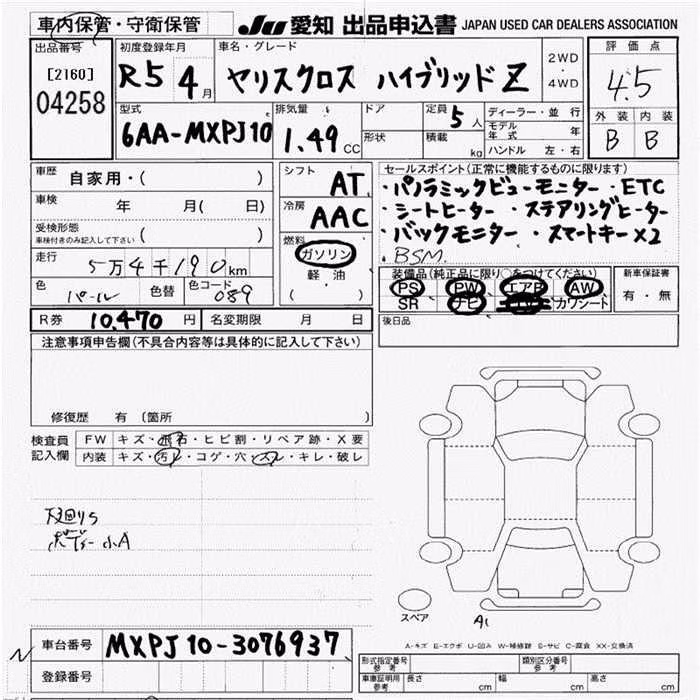 車内保管・守衛保管 JU 愛知 出品申込書 JAPAN USED CAR DEALERS ASSOCIATION
出品番号 初度登録年月 車名・グレード 2WD・4WD 評価点
[2160] 04258 R5 4月 ヤリスクロス ハイブリッドZ 4.5
型式 排気量 ドア 定員 5人 ディーラー・並行 外装 内装
6AA-MXPJ10 1.49CC 形状 積載 kg モデル年式 年 B B
ハンドル 左・右
車歴 自家用・( ) シフト AT セールスポイント(正常に機能するものに限ります)
車検 年 月( 日) 冷房 AAC ・パノラミックビューモニター・ETC
・シートヒーター・ステアリングヒーター
受検形態 ( ) 燃料 ・バックモニター・スマートキー×2
車検付きのみ記入して下さい ガソリン BSM.
走行 5万4千190km 軽油 装備品(純正品に限り○をつけてください) 新車保証書
色 パール 色替 色コード 089 ( ) PS PW エアB AW 有・無
SR ナビ カワシート
R券 10,470円 名変期限 月 日 後日品
注意事項申告欄(不具合内容等は具体的に記入して下さい)
修復歴 有 (箇所 )
検査員記入欄 FW キズ・飛石・ヒビ割・リペア跡・X要
内装 キズ・汚レ・コゲ・穴・スレ・キレ・破レ
下廻りS
ボデー小A
スペア A1
A-キズ E-エクボ U-凹み W-補修跡 S-サビ C-腐食 XX-交換済
N 車台番号 MXPJ10-3076937
登録番号
形式指定番号 参考 類別区分番号 参考
車庫証明用 参考 長さ cm 幅 cm 高さ cm